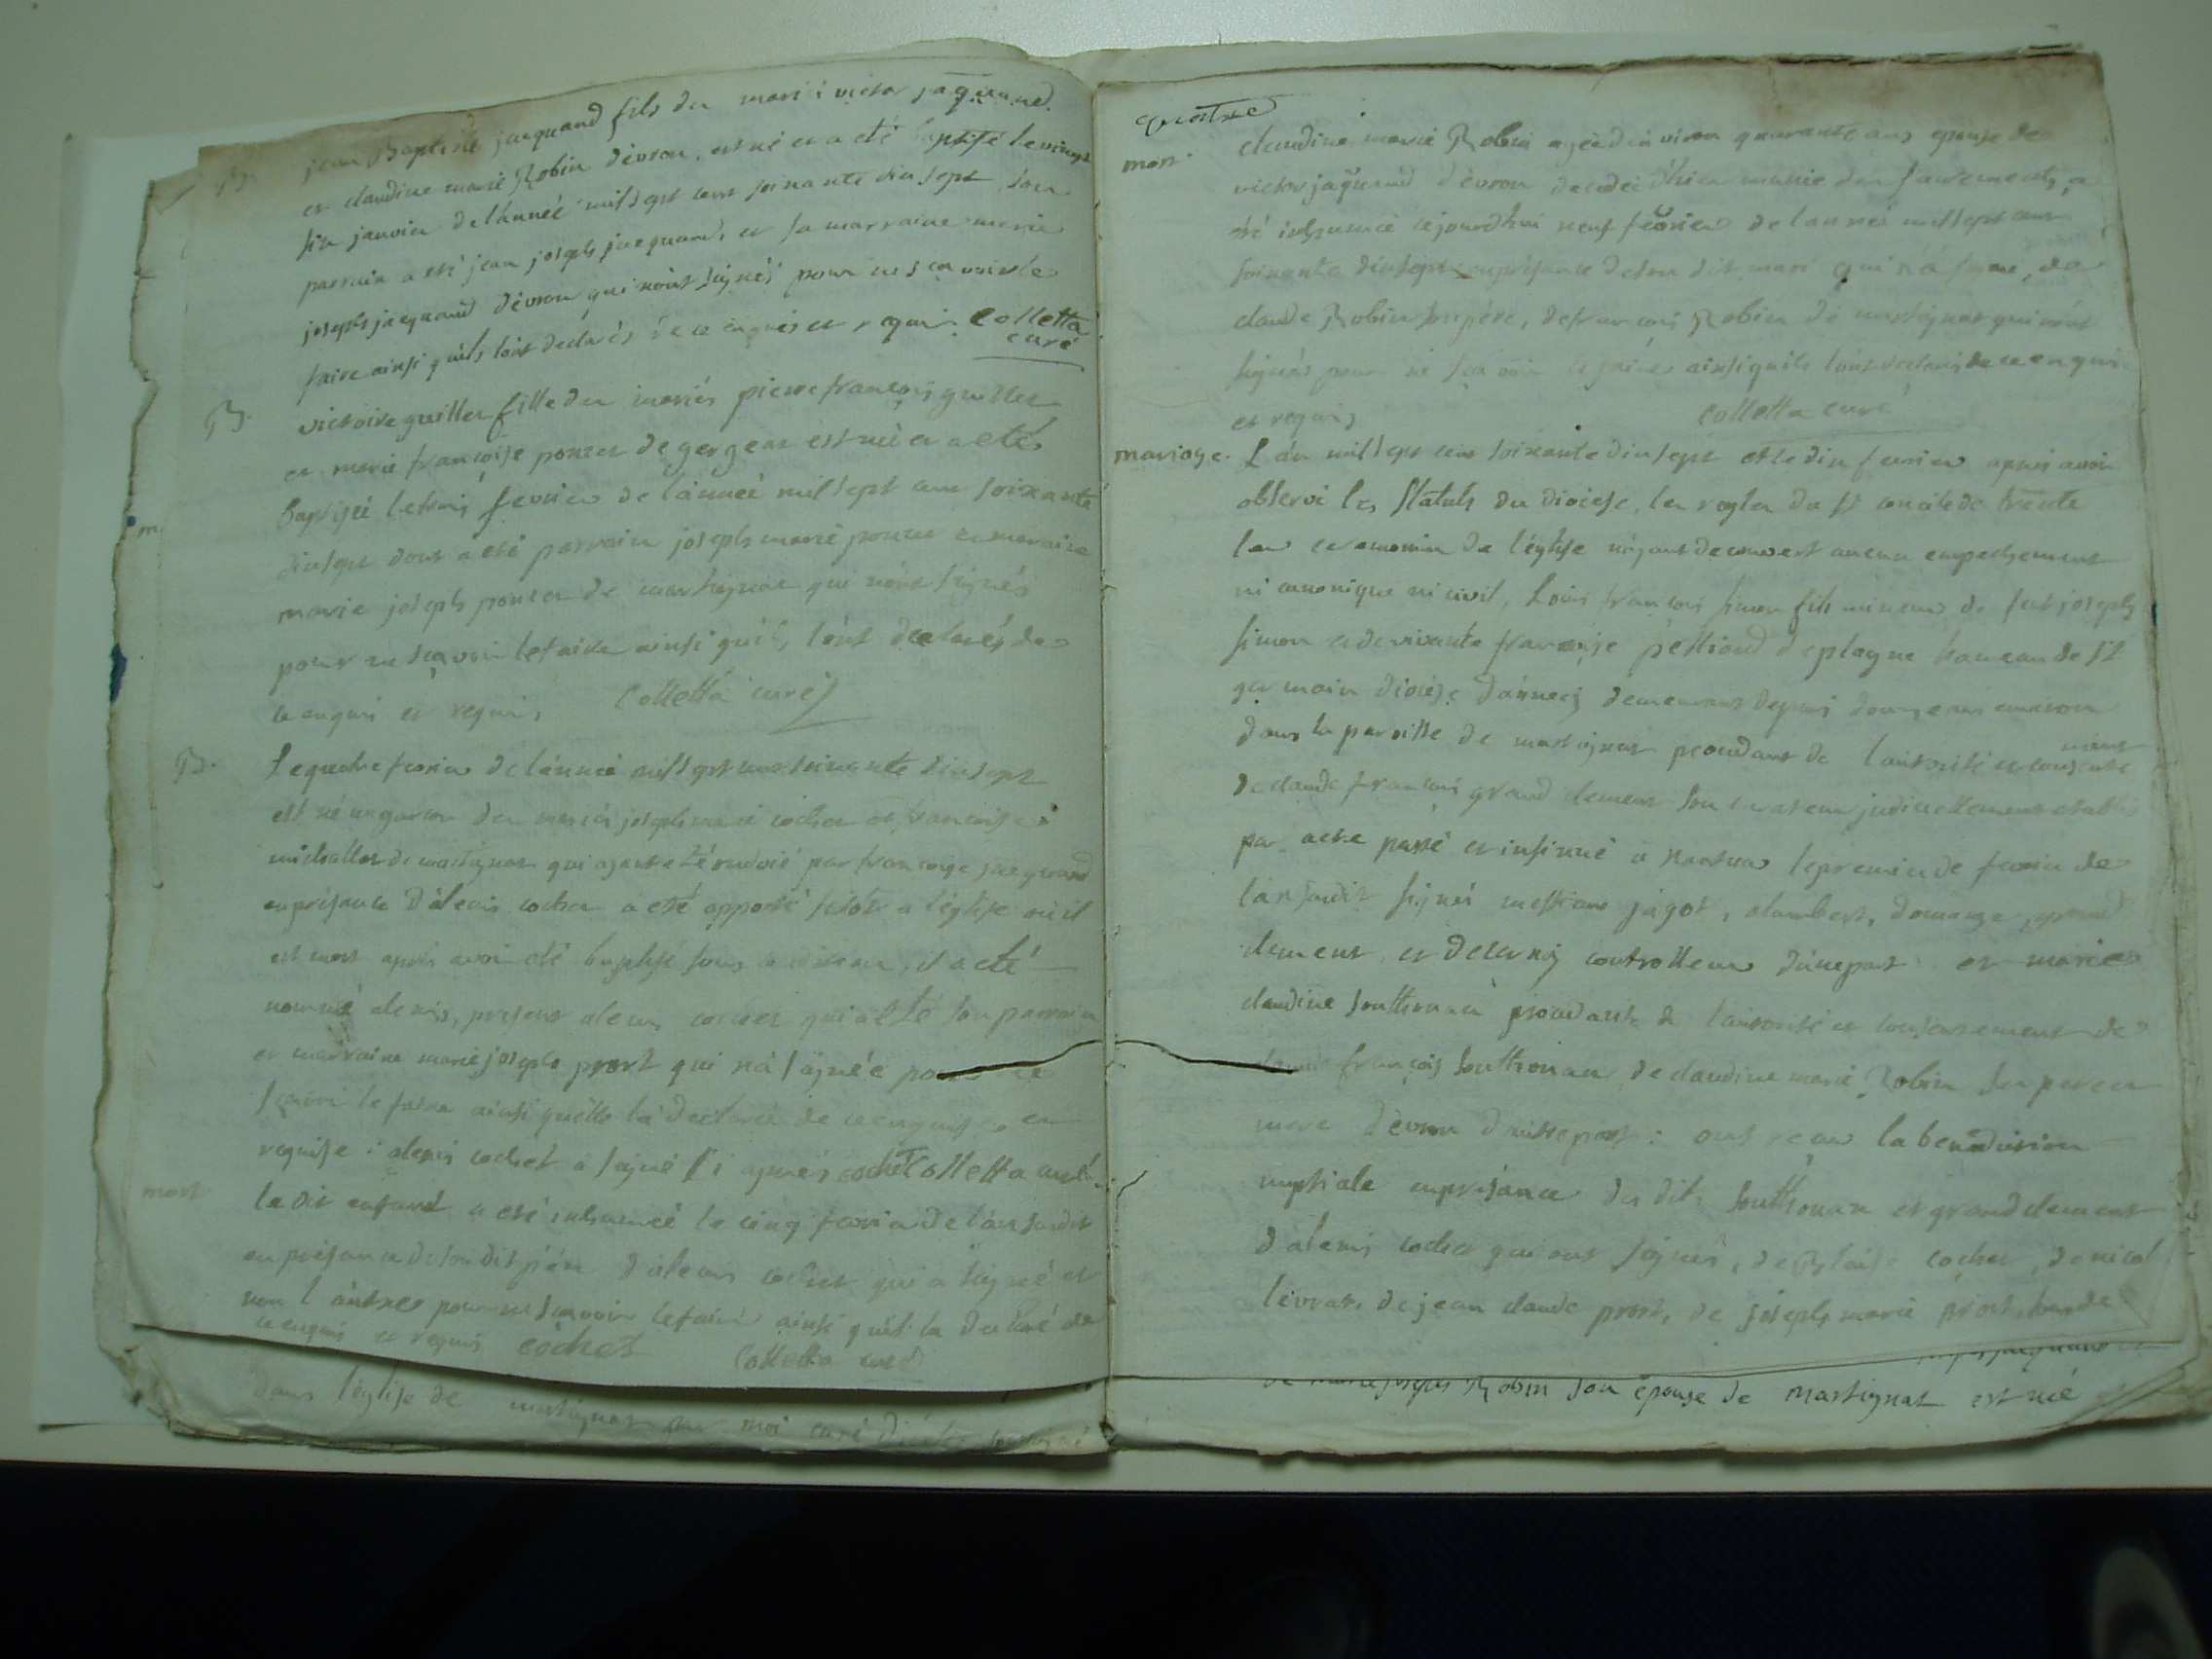 B. jean Baptiste jacquand fils des mariés victor jaquand
et claudine marie Robin d'evron, est né et a eté baptisé le vingt
six janvier de l'année mil sept cent soixante dix sept, son
parrain a eté jean joseph jacquand, et sa marraine marie
joseph jacquand d'evron qui n'ont signés pour ne sçavoir le
faire ainsi qu'ils l'ont declarés de ce enquis et requis. Colletta
curé
B. victoire guillet fille des mariés pierre françois guillet
et marie françoise poncet de gergeat est née et a eté
baptisée le trois fevrier de l'année mil sept cent soixante
dix sept dont a eté parrain joseph marie poncet et maraine
marie joseph poncet de martignat qui n'ont signés
pour ne sçavoir le faire ainsi qu'ils l'ont declarés de
ce enquis et requis, Colletta curé
B. Le quatre fevrier de l'année mil sept cent soixante dix sept
est né un garçon des mariés joseph marie cochet et françoise
michallet de martignat qui ayant eté ondoié par françoise jacquand
en présance d'alexis cochet a eté apporté sitôt a l'église où il
est mort après avoir eté baptisé sous condition, il a eté
nommé alexis, présent alexis cochet qui a eté son parrain
et marraine marie joseph prost qui n'a signée pour ne
sçavoir le faire ainsi qu'elle l'a declarée de ce enquise et
requise; alexis cochet a signé ci après cochet Colletta curé
mort le dit enfant a eté inhumé le cinq fevrier de l'an susdit
en présance de son dit père d'alexis cochet qui a signé et
non l'autre pour ne sçavoir le faire ainsi qu'il l'a declaré de
ce enquis et requis cochet Colletta curé
dans l'église de martignat par moi curé
quatre
mort. claudine marie Robin agée d'environ quarante ans epouse de
victor jaquand d'evron decedée hier munie des sacrements, a
été inhumée ce jourd'hui neuf fevrier de l'année mil sept cent
soixante dix sept en présance de son dit mari qui n'a signé, de
claude Robin son père, de françois Robin de martignat qui n'ont
signés pour ne sçavoir le faire ainsi qu'ils l'ont declarés de ce enquis
et requis, Colletta curé
mariage. L'an mil sept cent soixante dix sept et le dix fevrier après avoir
observé les statuts du diocese, les regles du st concile de trente
les ceremonies de l'église n'ayant decouvert aucun empechement
ni canonique ni civil, Louis françois simon fils mineur de feu joseph
simon et de vivante françoise d'eplagne hameau de St
germain diocèse d'annecy demeurant depuis douze ans environ
dans la paroisse de martignat procedant de l'autorité et consente
ment
de claude françois grand clement son curateur judiciellement etabli
par acte passé et insinué a nantua le premier de fevrier de
l'an susdit signés messieurs jagot, alambert, domange, grand
clement, et controlleur d'une part et marie
claudine southonax procedante de l'autorité et consentement de
françois southonax, de claudine marie Robin ses pere et
mere d'evron d'autre part: ont reçu la benediction
nuptiale en présance des dits southonax et grand clement
d'alexis cochet qui ont signés, de Blaise cochet, de nicol
levrat, de jean claude prost, de joseph marie prost,
de marie joseph Robin son épouse de martignat est né